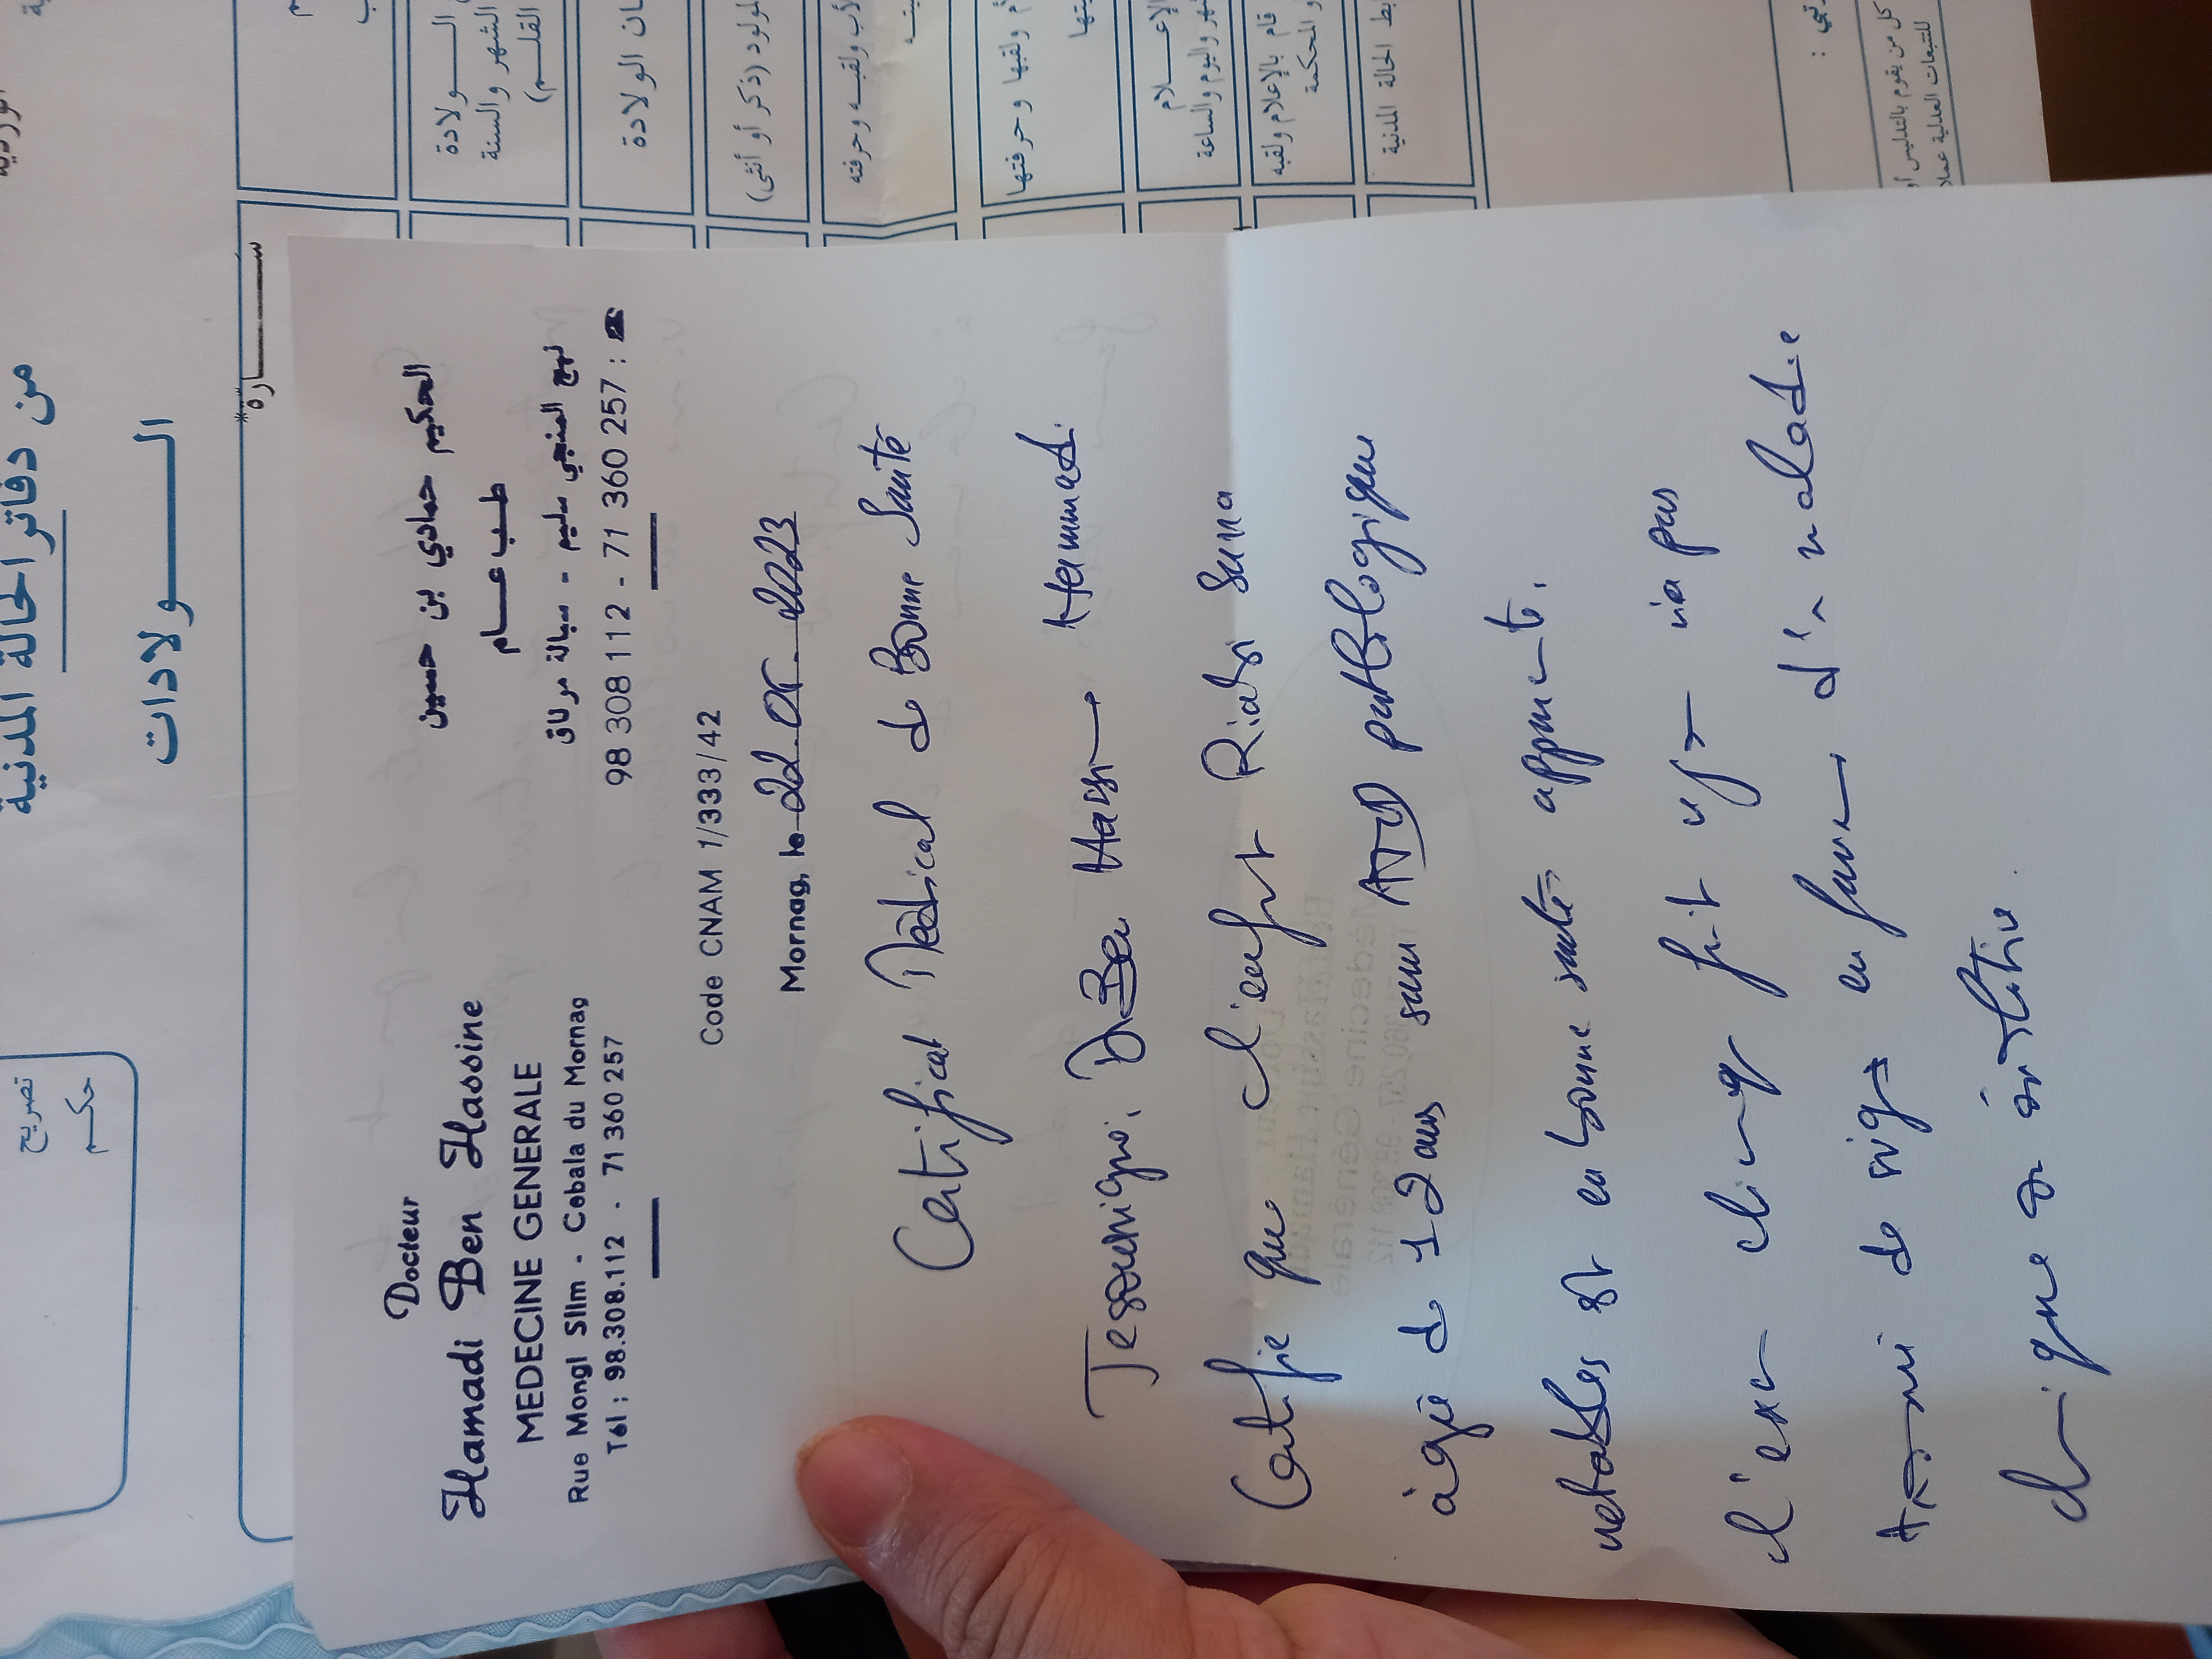 Docteur
Hamadi Ben Hassine
MEDECINE GENERALE
Rue Mongi Slim - Cebala du Mornag
Tél : 98.308.112 - 71 360 257
الحكيم حمادي بن حسين
طب عام
نهج المنجي سليم - سبالة مرناق
98 308 112 - 71 360 257 : ☎
Code CNAM 1/333/42
Mornag, le 22.05.2023
Certificat Médical de Bonne Santé
Je soussigné, Dr Ben Hassine Hammadi
Certifie que l'enfant Riahi Sana
âgée de 12 ans sans ATD pathologique
notables est en bonne santé apparente.
l'examen clinique fait ce jour n'a pas
de signes en faveur d'1 maladie
clinique évolutive.
من دفاتر الحالة المدنية
الـولادات
تصريح
حكم
سـارة
الـولادة
الشهر والسنة
القلـم)
ـان الولادة
ـولود (ذكر أو أنثى)
لأب ولقبه وحرفته
أم ولقبها وحرفتها
الإعـلام
ـهر واليوم والساعة
قام بالإعلام ولقبه
و المحكمة
ـبط الحالة المدنية
كل من يقوم بالتدليس أو
للتتبعات العدلية عملا